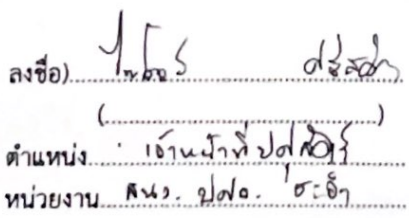 ลงชื่อ)
(
)
ตำแหน่ง เจ้าหน้าที่ปศุสัตว์
หน่วยงาน สนง. ปศอ. ชะอำ